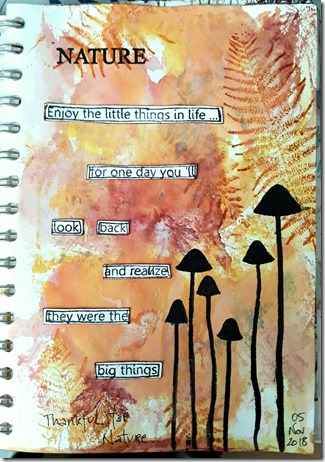 NATURE
Enjoy the little things in life ...
for one day you 'll
look back
and realize
they were the
big things
Thankful for
Nature
05
Nov
2018